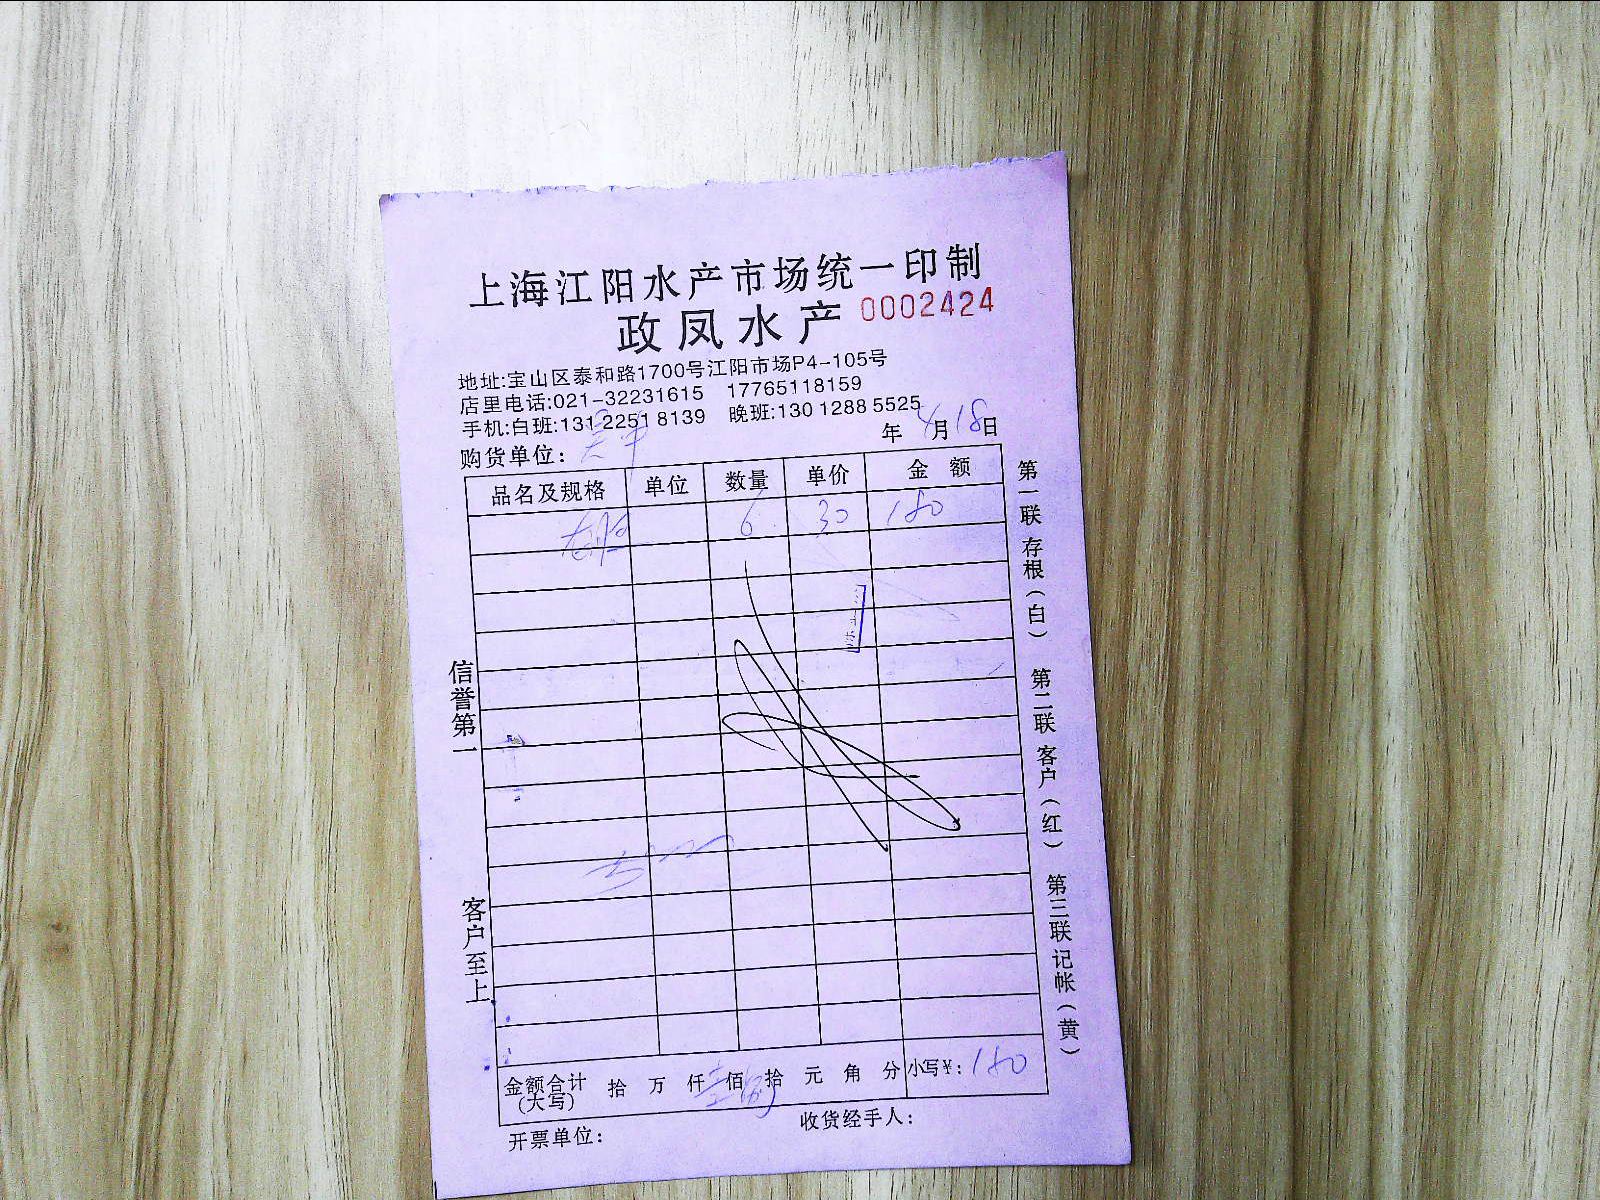 上海江阳水产市场统一印制
政凤水产 0002424
地址:宝山区泰和路1700号江阳市场P4-105号
店里电话:021-32231615 17765118159
手机:白班:13122518139 晚班:13012885525
购货单位: 年4月18日
品名及规格 单位 数量 单价 金额
6 30 180
信誉第一
客户至上
第一联 存根(白) 第二联 客户(红) 第三联 记帐(黄)
金额合计(大写) 拾 万 仟 佰 拾 元 角 分 小写¥: 180
开票单位: 收货经手人: